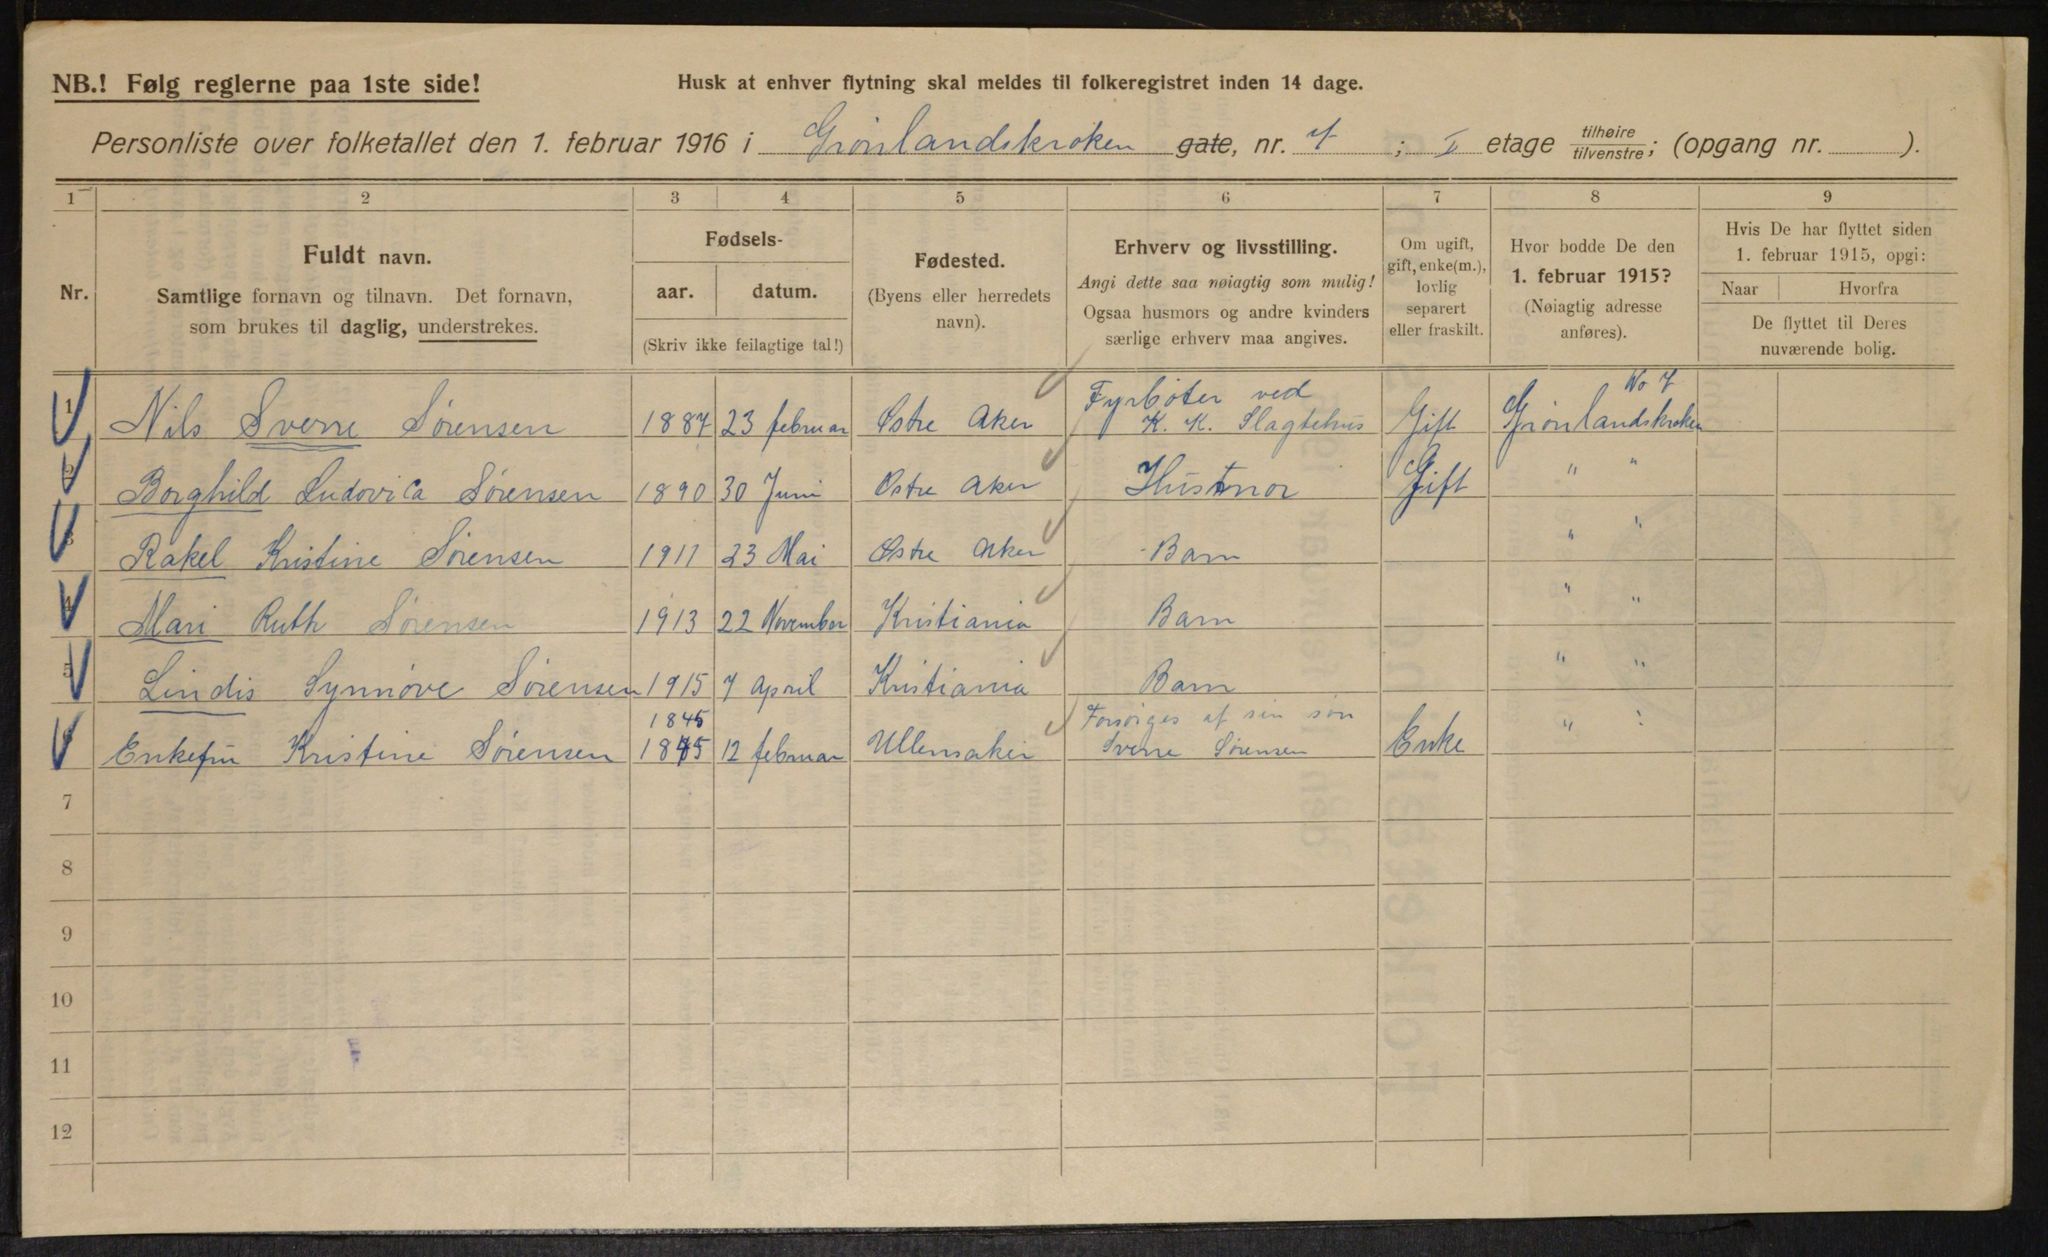 NB.! Følg reglerne paa 1ste side! Husk at enhver flytning skal meldes til folkeregistret inden 14 dage.
Personliste over folketallet den 1. februar 1916 i Grönlandskroken gate, nr. 7 ; I etage tilhøire/tilvenstre; (opgang nr. ).
1 2 3 4 5 6 7 8 9
Nr.
Fuldt navn.
Samtlige fornavn og tilnavn. Det fornavn,
som brukes til daglig, understrekes.
Fødsels-
aar. datum.
(Skriv ikke feilagtige tal!)
Fødested.
(Byens eller herredets
navn).
Erhverv og livsstilling.
Angi dette saa nøiagtig som mulig!
Ogsaa husmors og andre kvinders
særlige erhverv maa angives.
Om ugift,
gift, enke(m.),
lovlig
separert
eller fraskilt.
Hvor bodde De den
1. februar 1915?
(Nøiagtig adresse
anføres).
Hvis De har flyttet siden
1. februar 1915, opgi:
Naar Hvorfra
De flyttet til Deres
nuværende bolig.
Fyrböter ved No 7
1 Nils Sverre Sörensen 1887 23 februar Östre Aker K. K. Slagtehus Gift Grönlandskroken
2 Borghild Ludovica Sörensen 1890 30 Juni Östre Aker Hustror Gift " "
3 Rakel Kristine Sörensen 1911 23 Mai Östre Aker Barn " "
4 Mari Ruth Sörensen 1913 22 November Kristiania Barn " "
5 Lindis Synnöve Sörensen 1915 7 April Kristiania Barn " "
1845 Forsörges af sin sön
6 Enkefru Kristine Sörensen 1845 12 februar Ullensaker Sverre Sörensen Enke " "
7
8
9
10
11
12